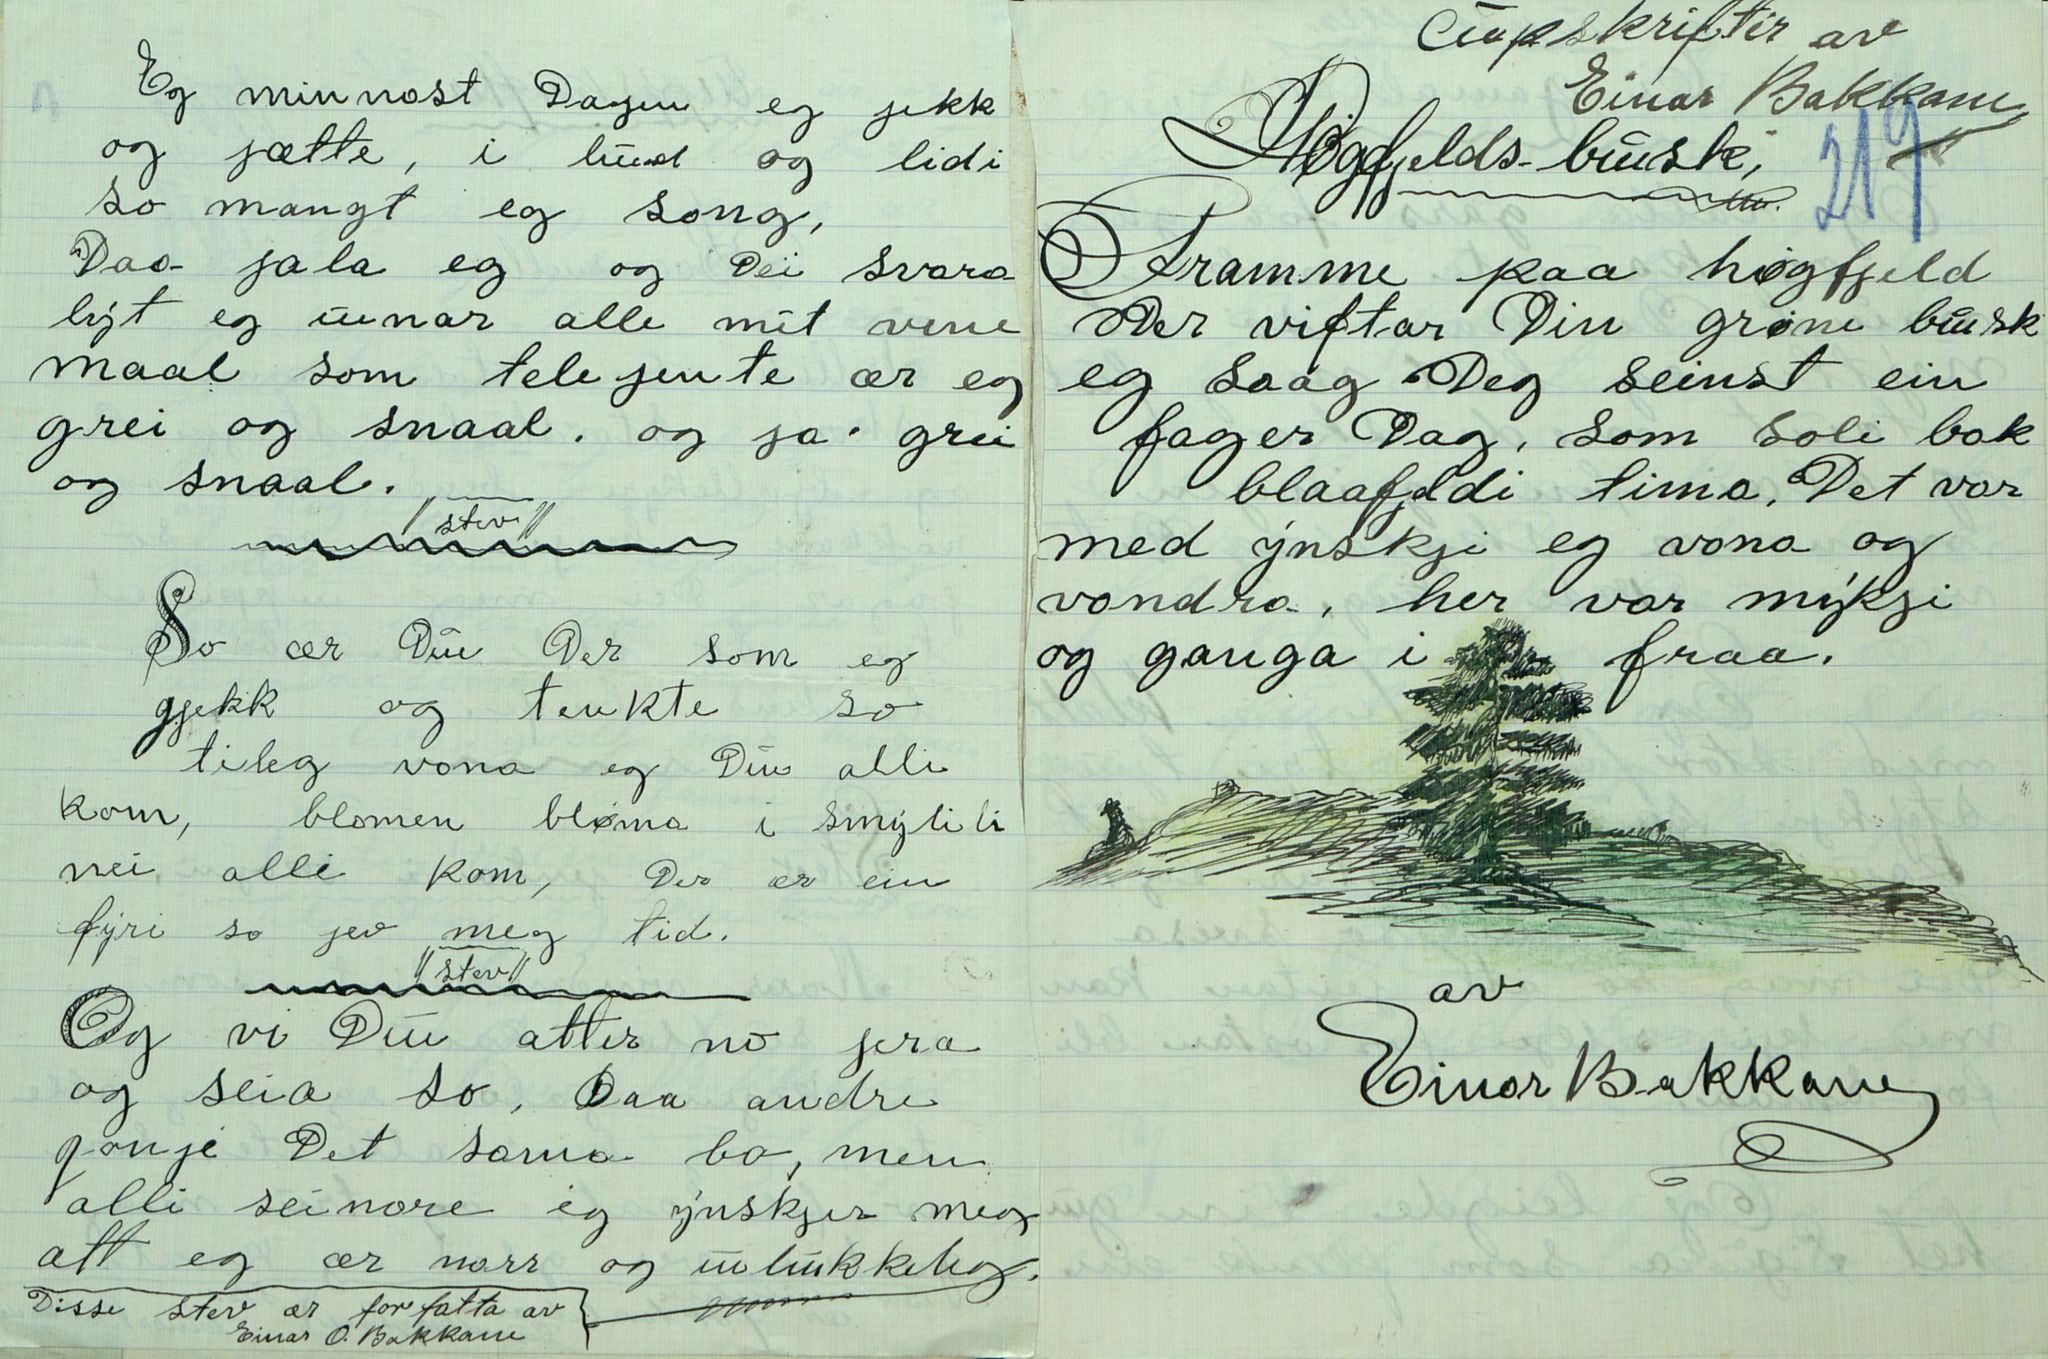 Eg minnost Dagen eg jekk
og jætte, i lund og lidi
so mangt eg song,
Daa jala eg og Dei svara
lyt eg unar alle mit vene
maal som telejente ær eg
grei og snaal. og ja grei
og snaal.
"stev"
So ær Du Der som eg
gjekk og tenkte so
tileg vona eg Du alli
kom, blomen bløma i smylili
nei alli kom, Der ær ein
fyri so jev meg tid.
"stev"
Og vi Du atter no jera
og seia so, Daa andre
ganje Det sama ba, men
alli seinare eg ynskjer meg
att eg ær narr og ulukkeleg.
Disse stev ær forfatta av
Einar O. Bakkane
Uupskriftir av
Einar Bakkane
219
Høgfjelds-busk,
Framme paa høgfjeld
Der viftar Din grøne busk
eg saag Deg seinst ein
fager Dag, som soli bak
blaafjeldi tima, Det var
med ynskje eg vona og
vandra, her var mykji
og ganga i fraa.
av
Einar Bakkane